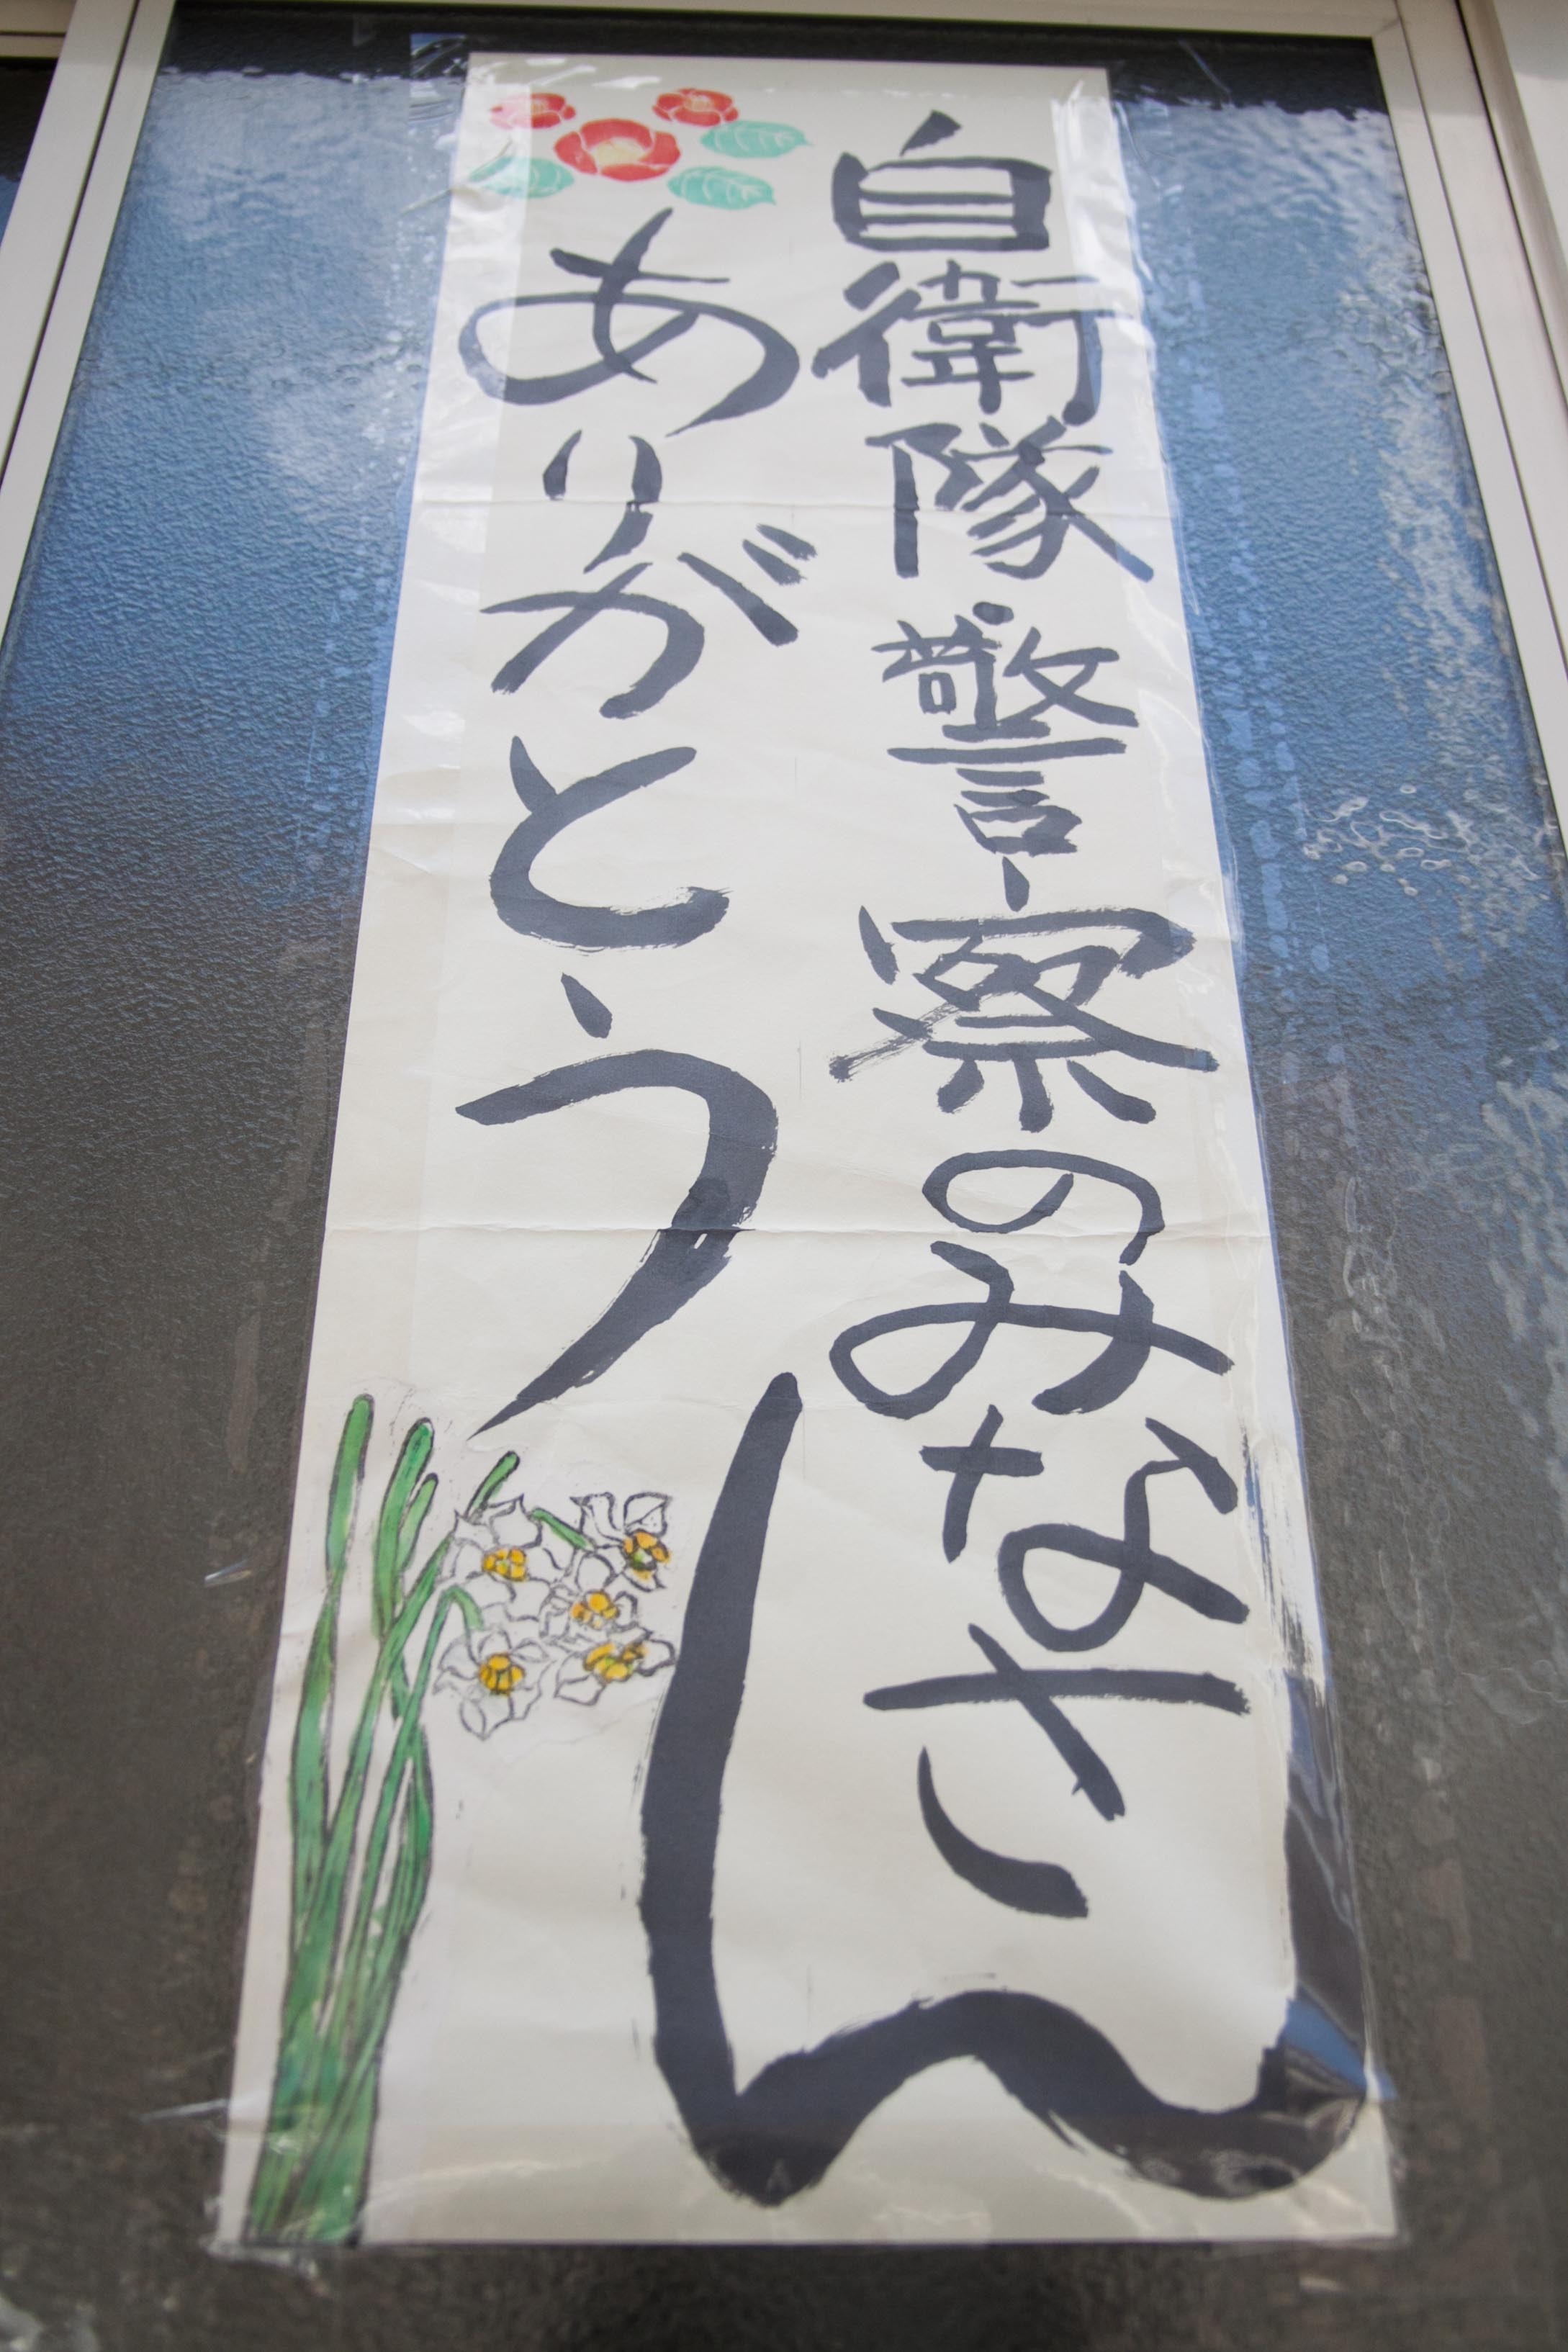 自衛隊警察のみなさん
ありがとう